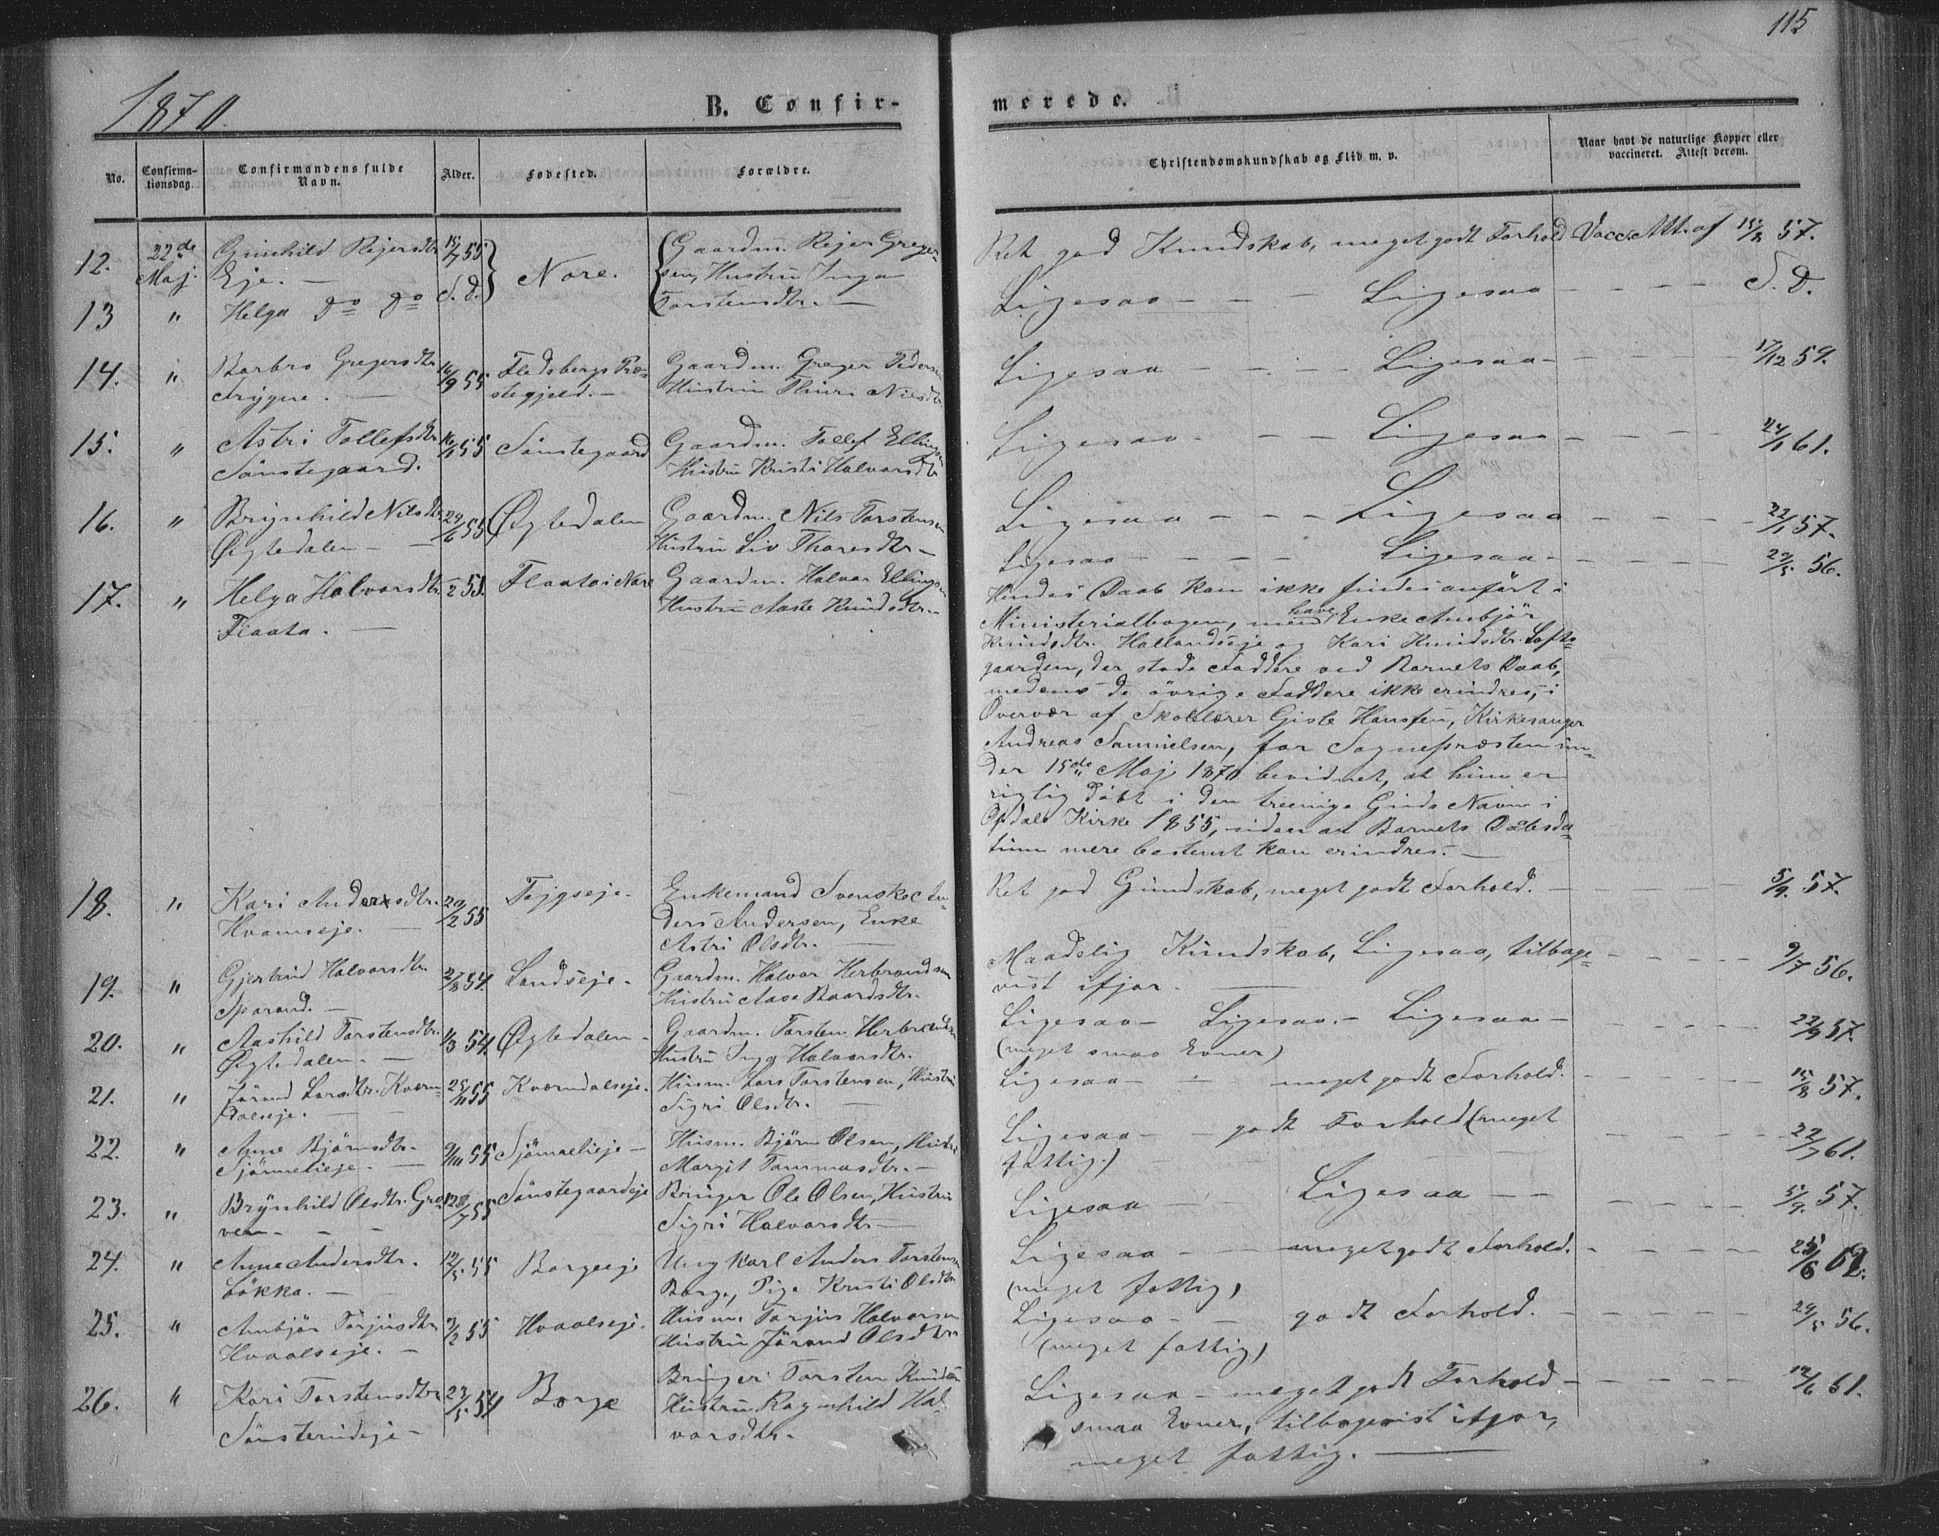 115
1870.
B. Confir-
merede.
No.
Confirma-
tionsdag.
Confirmandens fulde
Navn.
Alder.
Fødested.
Forældre.
Christendomskundskab og Flid m. v.
Naar havt de naturlige Kopper eller
vaccineret. Attest derom.
12. 22de Gunhild Rejersdtr. 15/7 55 Nore. Gaardm. Rejer Greger- Ret god Kundskab, meget godt Forhold Vacc. Att. af 57.
Maj. Eje. — sen, Hustru Inga
13 " Helga do do S. D. Torstensdtr. — Ligesaa — — — Ligesaa — — — S. D.
14. " Barbro Gregersdtr. 16/9 55 Flesbergs Præ- Gaardm. Greger Pedersen Ligesaa — — — Ligesaa — 17/12 59.
Frygne. — stegjeld. — Hustru Thuri Nilsdtr.
15. " Astri Tollefsdtr. 55 Sønstegaard Gaardm. Tollef Ellingsen Ligesaa — — — Ligesaa — 24/1 61.
Sønstegaard. Hustru Kristi Halvorsdtr.
16. " Brynhild Nilsdtr. 29/6 55 Øgtedalen Gaardm. Nils Torstensen Ligesaa — — — Ligesaa — 22/1 57.
Øgtedalen — — Hustru Liv Thoresdtr. —
17. " Helga Halvorsdtr. 55. Flaata i Nore Gaardm. Halvor Ellingsen Ligesaa — — — Ligesaa — 56.
Flaata. — Hustru Aaste Knudsdtr. —
Hendes Daab kan ikke findes anført i
Ministerialbogen, men have Enke Anbjør
Knudsdtr. Hallandseje og Kari Knudsdtr. Lofts-
gaarden, der stode Faddere ved Barnets Daab,
medens de øvrige Faddere ikke erindres, i
Overvær af Skolelærer Gisle Hansen, Kirkesanger
Andreas Samuelsen, for Sognepræsten un-
der 15de Maj 1870 bevidnet, at hun er
rigtig døbt i den treenige Guds Navn i
Opdals Kirke 1855, uden at Barnets Daabsda-
tum mere bestemt kan erindres. —
18. " Kari Andersdtr. 20/2 55 Tøjgseje. Enkemand Svenske An- Ret god Kundskab, meget godt Forhold. — 5/9. 57.
Hvamseje. — ders Andersen, Enke
Astri Olsdtr. —
19. " Gjertrud Halvorsdtr. 2/8 54. Landseje. Gaardm. Halvor Herbrandsen Maadelig Kundskab, Ligesaa, tilbage- 9/7 56.
Sporand. — Hustru Aase Baardsdtr. — vist ifjor. —
20. " Aashild Torstensdtr. 1/3 54 Øgtedalen — Gaardm. Torsten Herbrandsen Ligesaa — Ligesaa. — Ligesaa — 22/9 57.
Øgtedalen. — Hustru Inga Halvorsdtr. (meget smaa Evner)
21. " Jørand Larsdtr. Kværn- 25/11 55 Kværndalseje. Husm. Lars Torstensen, Hustru Ligesaa — — meget godt Forhold. 15/8 57.
dalseje. — — Sigri Olsdtr. —
22. " Anne Bjørnsdtr. 9/10 55 Sjønnelieje — Husm. Bjørn Olsen, Hustru Ligesaa — — godt Forhold (meget 22/7 61.
Sjønnelieje. — Margit Tommasdtr. — fattig.)
23. " Brynhild Olsdtr. Gra- 55 Sønstegaardseje Bruger Ole Olsen, Hustru Ligesaa — — Ligesaa — — 5/9. 57.
ven. — — Sigri Halvorsdtr. —
24. " Anne Andersdtr. 12/5. 55 Borgeeje Ung Karl Anders Torstensen Ligesaa — — meget godt Forhold. 25/6 62.
Løkka. — Borge, Pige Kristi Olsdtr. (meget fattig)
25. " Anbjør Torjusdtr. 2/2 55 Hvaalseje. Husm. Torjus Halvorsen Ligesaa — — godt Forhold. — 29/5 56.
Hvaalseje. — Hustru Jørand Olsdtr. (meget fattig)
26. " Kari Torstensdtr. 23/5. 54 Borge Bruger Torsten Knudsen Ligesaa — meget godt Forhold — 12/6 61.
Sønsterudeje — Hustru Ragnhild Hal- smaa Evner, tilbagevist ifjor,
vorsdtr. — meget fattig. —